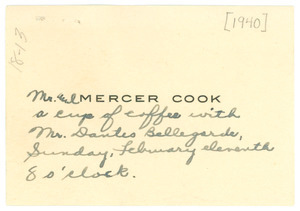 [1940]
1843
Mr. and MERCER COOK
a cup of coffee with
Mr. Dantès Bellegarde,
Sunday, February eleventh
8 o'clock.